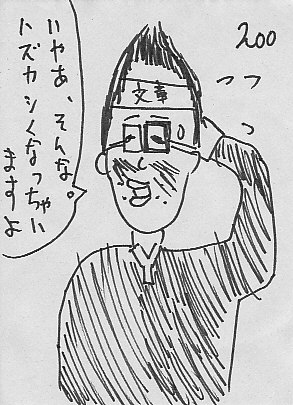 200
文章
いやあ、そんな。
ハズカシくなっちゃい
ますよ